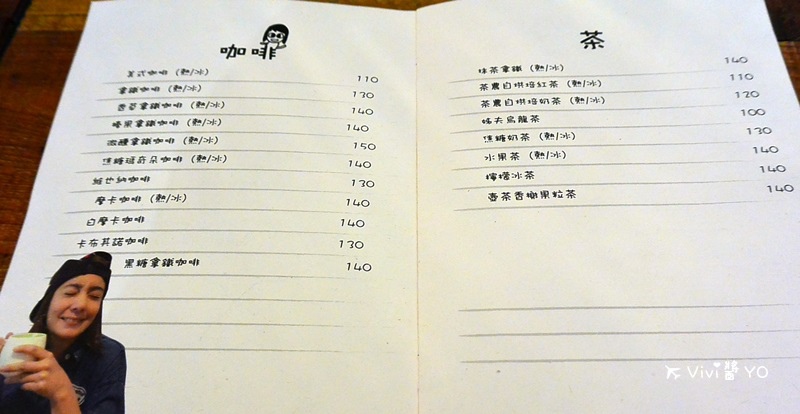 咖啡
美式咖啡 (熱/冰) 110
拿鐵咖啡 (熱/冰) 130
香草拿鐵咖啡 (熱/冰) 140
榛果拿鐵咖啡 (熱/冰) 140
微醺拿鐵咖啡 (熱/冰) 150
焦糖瑪奇朵咖啡 (熱/冰) 140
維也納咖啡 130
摩卡咖啡 (熱/冰) 140
白摩卡咖啡 140
卡布其諾咖啡 130
黑糖拿鐵咖啡 140
茶
抹茶拿鐵 (熱/冰) 140
茶農自烘培紅茶 (熱/冰) 110
茶農自烘培奶茶 (熱/冰) 120
姊夫烏龍茶 100
焦糖奶茶 (熱/冰) 130
水果茶 (熱/冰) 140
檸檬冰茶 140
壺茶香榭果粒茶 140
Vivi醬 YO